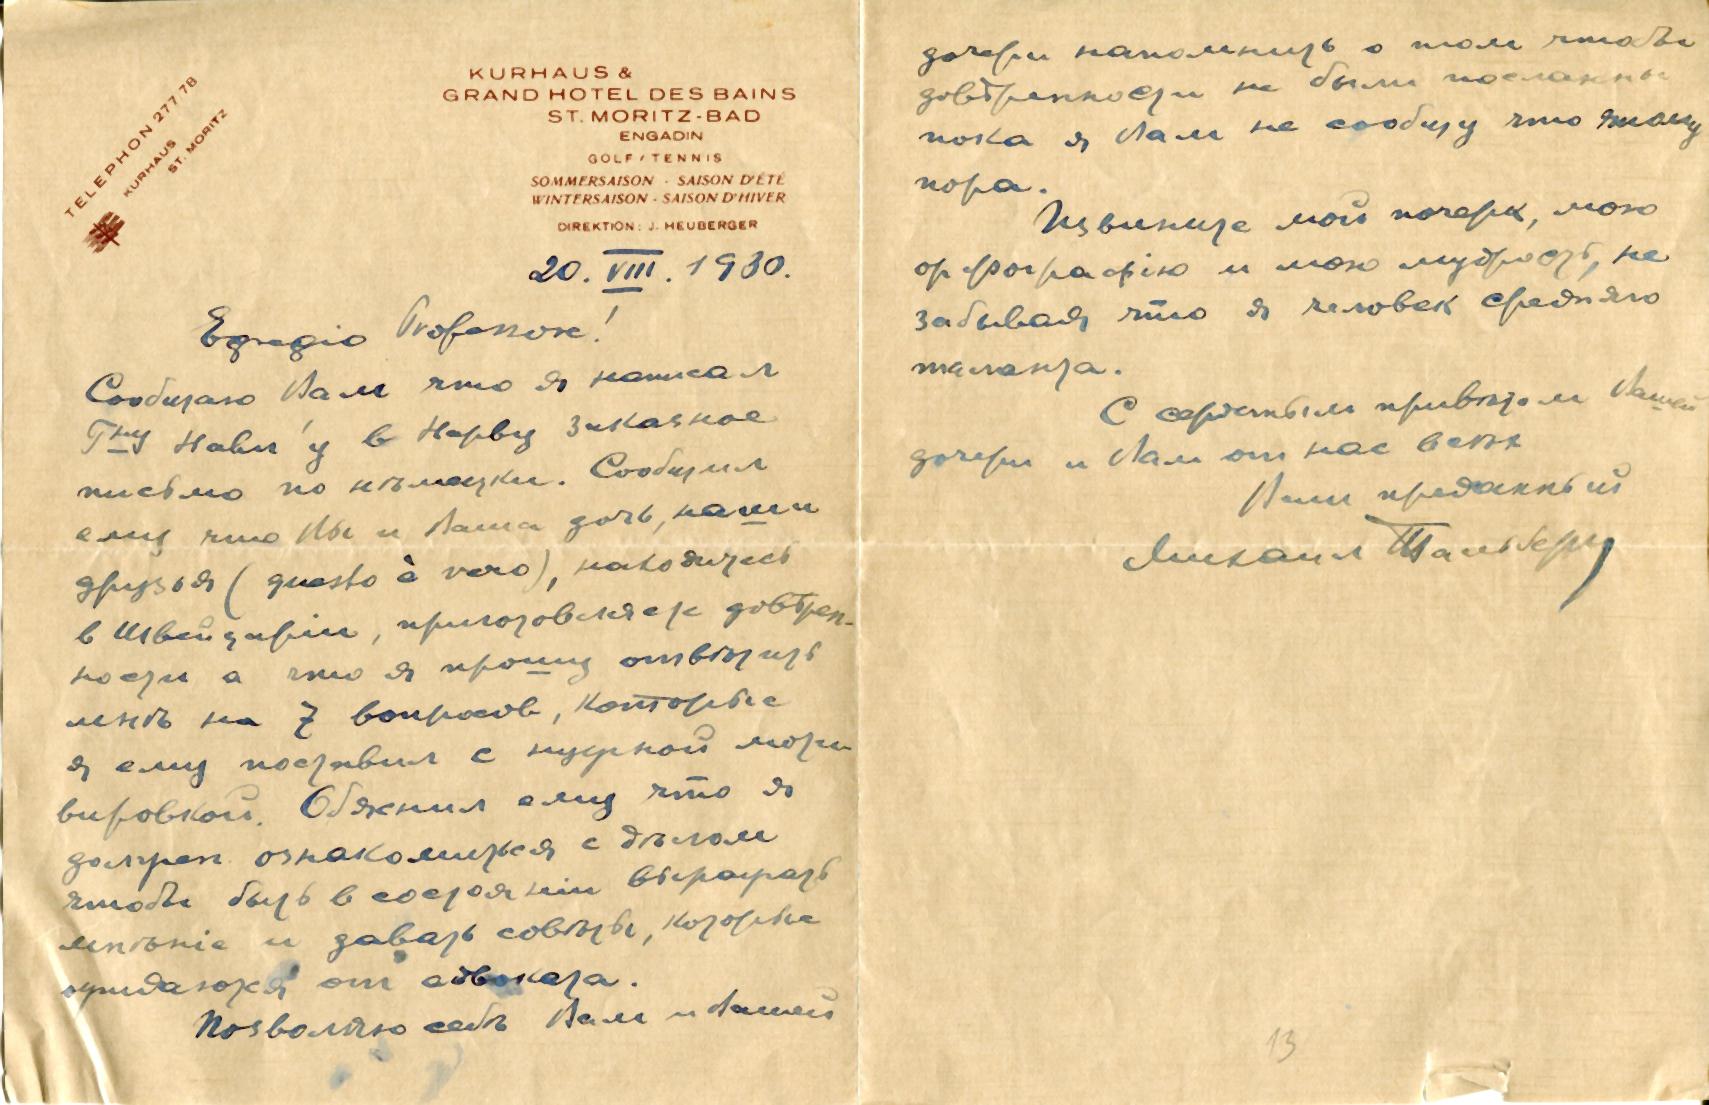 TELEPHON 277 78
KURHAUS
ST. MORITZ
KURHAUS &
GRAND HOTEL DES BAINS
ST. MORITZ-BAD
ENGADIN
GOLF / TENNIS
SOMMERSAISON - SAISON D'ÉTÉ
WINTERSAISON - SAISON D'HIVER
DIREKTION: J. HEUBERGER
20. VIII. 1930.
Egregio Professore!
Сообщаю Вам что я написал
Гну в Нарву заказное
письмо по нѣмецки. Сообщил
ему что Вы и Ваша дочь, наши
друзья (questo è vero), находитесь
в Швейцаріи, приготовляете довѣрен-
ности а что я прошу отвѣтить
мнѣ на 7 вопросов, которые
я ему поставил с нужной моти
вировкой. Обяснил ему что я
должен ознакомиться с дѣлом
чтобы быть в состояніи выражать
мнѣніе и давать совѣты, которые
ожидаются от адвоката.
Позволяю себѣ Вам и Вашей
дочери напомнить о том чтобы
довѣренности не были посланны
пока я Вам не сообщу что этому
пора.
Извините мой почерк, мою
орфографію и мою мудрость, не
забывая что я человек средняго
таланта.
С сердечным привѣтом Вашей
дочери и Вам от нас всѣх
Ваш преданный
Михаил Тальберг
13